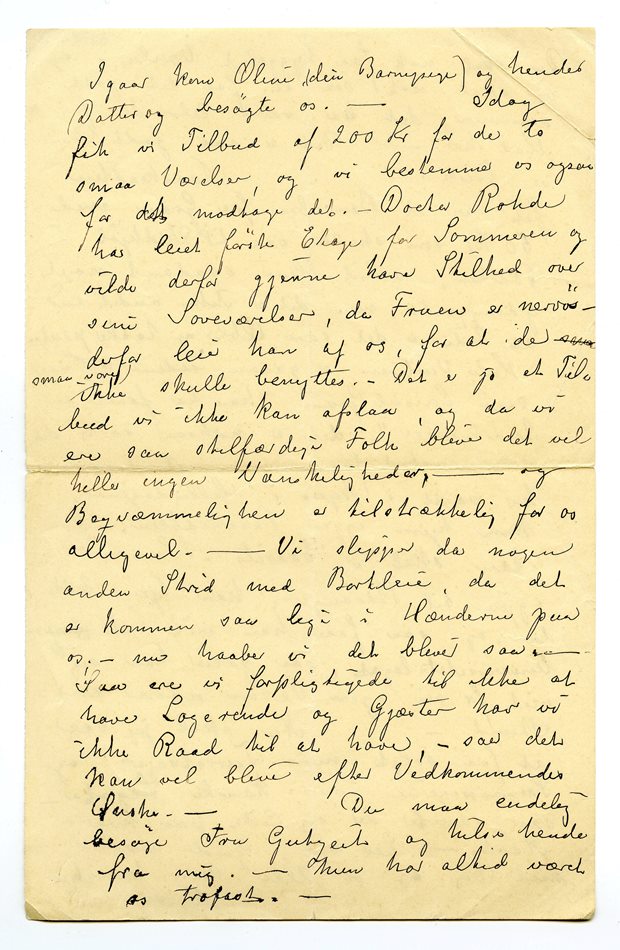 Igaar kom Oline (din Barnepige) og hendes
Datter og besøgte os. — Idag
fik vi Tilbud af 200 Kr for de to
smaa Værelser, og vi bestemmer os ogsaa
for at modtage det. — Doctor Rohde
har leiet første Etage for Sommeren og
vilde derfor gjerne have Stilhed over
sine Soveværelser, da Fruen er nervøs —
derfor leier han af os, for at de
smaa vær
ikke skulle benyttes. — Det er jo et Til-
bud vi ikke kan afslaa, og da vi
ere saa stilfærdige Folk bliver det vel
heller ingen Vanskeligheder, — og
Beqvæmmeligheden er tilstrækkelig for os
alligevel. — Vi slipper da nogen
anden Strid med Bortleie, da det
er kommen saa lige i Hænderne paa
os. — nu haaber vi det bliver saa. —
Saa ere vi forpligtigede til ikke at
have Logerende og Gjæster har vi
ikke Raad til at have, — saa det
kan vel blive efter Vedkommendes
Ønske. — Du maa endelig
besøge Fru og hilse hende
fra mig. — hun har altid været
os trofast. —